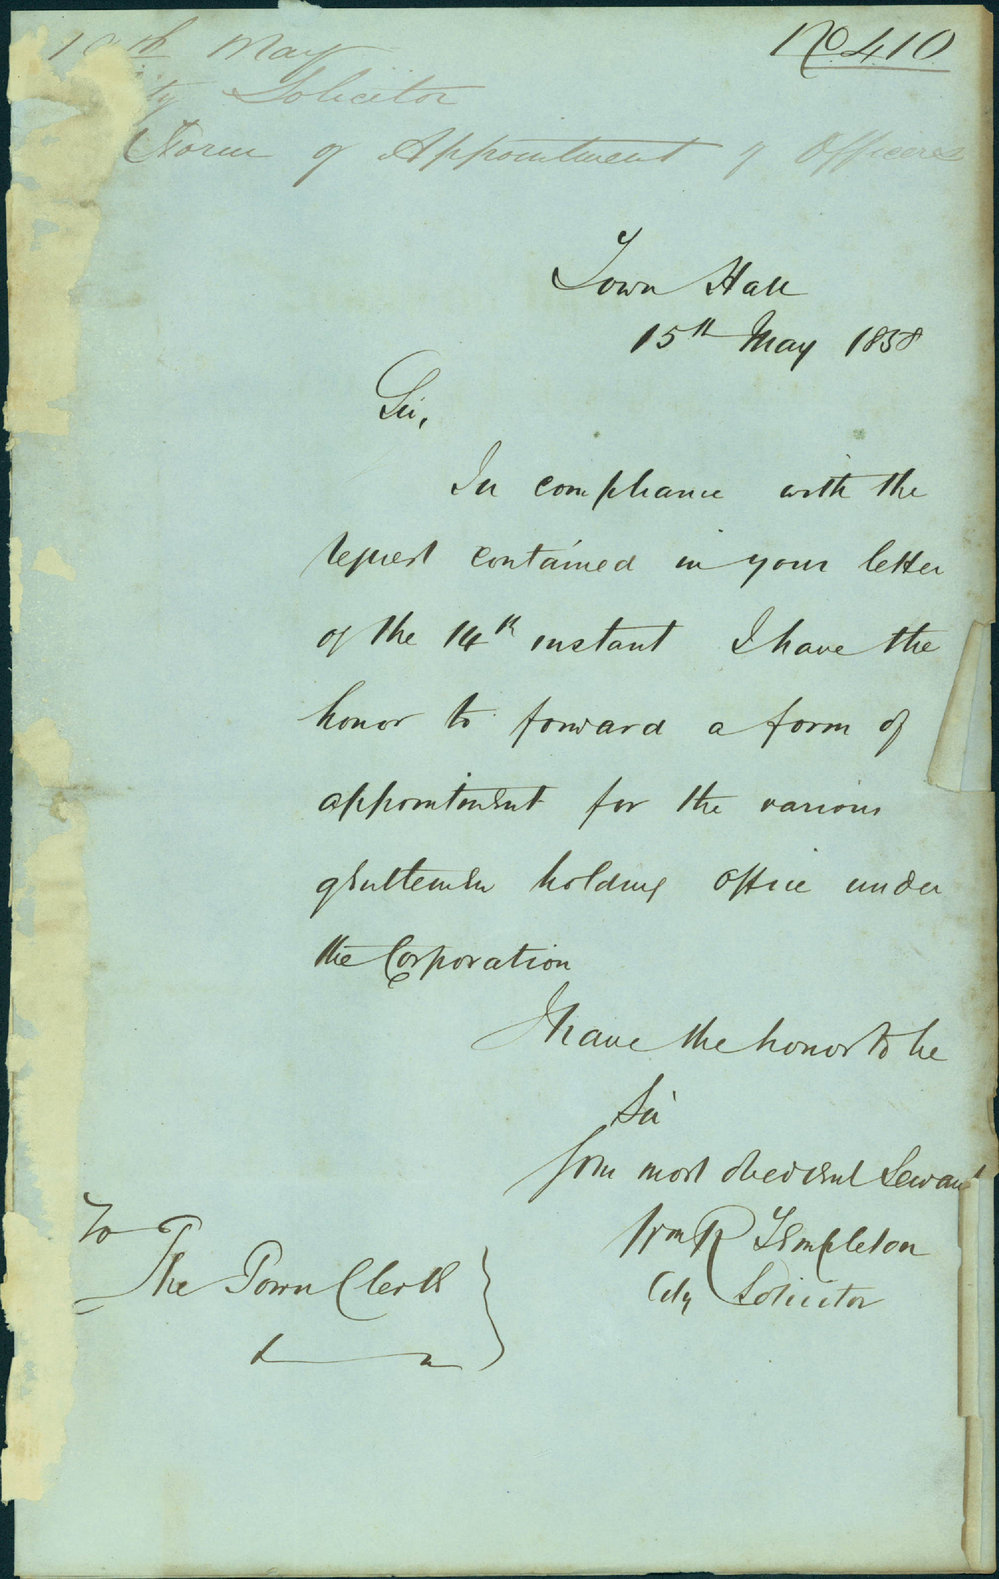 No. 410
th May
ty Solicitor
Form of Appointment of Officers
Town Hall
15th May 1858
Sir,
In compliance with the
request contained in your letter
of the 14th instant I have the
honor to forward a form of
appointment for the various
gentlemen holding office under
the Corporation
I have the honor to be
Sir
Your most obedient Servant
Wm R Templeton
City Solicitor
To
The Town Clerk